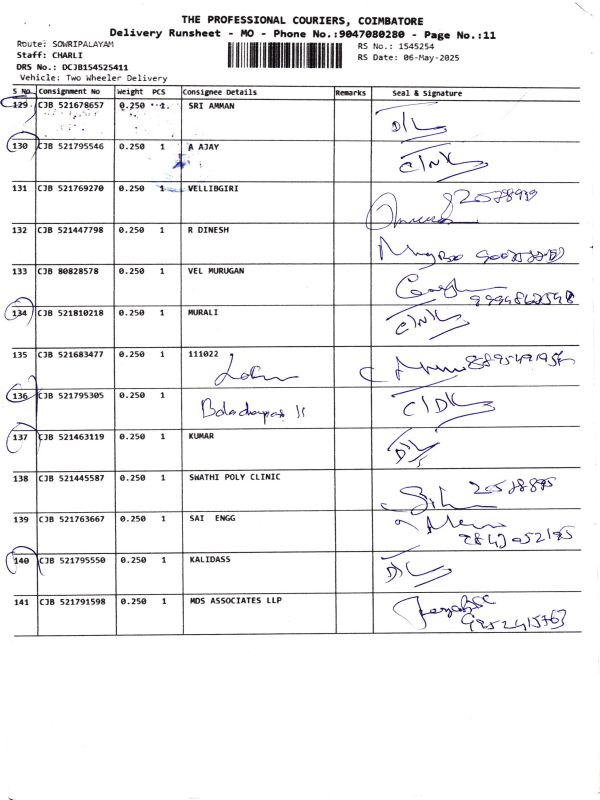 THE PROFESSIONAL COURIERS, COIMBATORE
Delivery Runsheet - MO - Phone No.:9047080280 - Page No.:11
Route: SOWRIPALAYAM
RS No.: 1545254
Staff: CHARLI
RS Date: 06-May-2025
DRS No.: DCJB154525411
Vehicle: Two Wheeler Delivery
S No Consignment No Weight PCS Consignee Details Remarks Seal & Signature
129 CJB 521678657 0.250 1 SRI AMMAN D/L
130 CJB 521795546 0.250 1 A AJAY C/NK
131 CJB 521769270 0.250 1 VELLIBGIRI
132 CJB 521447798 0.250 1 R DINESH
133 CJB 80828578 0.250 1 VEL MURUGAN
134 CJB 521810218 0.250 1 MURALI C/NK
135 CJB 521683477 0.250 1 111022
136 CJB 521795305 0.250 1 C/DK
137 CJB 521463119 0.250 1 KUMAR D/L
138 CJB 521445587 0.250 1 SWATHI POLY CLINIC
139 CJB 521763667 0.250 1 SAI ENGG
140 CJB 521795550 0.250 1 KALIDASS D/L
141 CJB 521791598 0.250 1 MDS ASSOCIATES LLP
9952415763